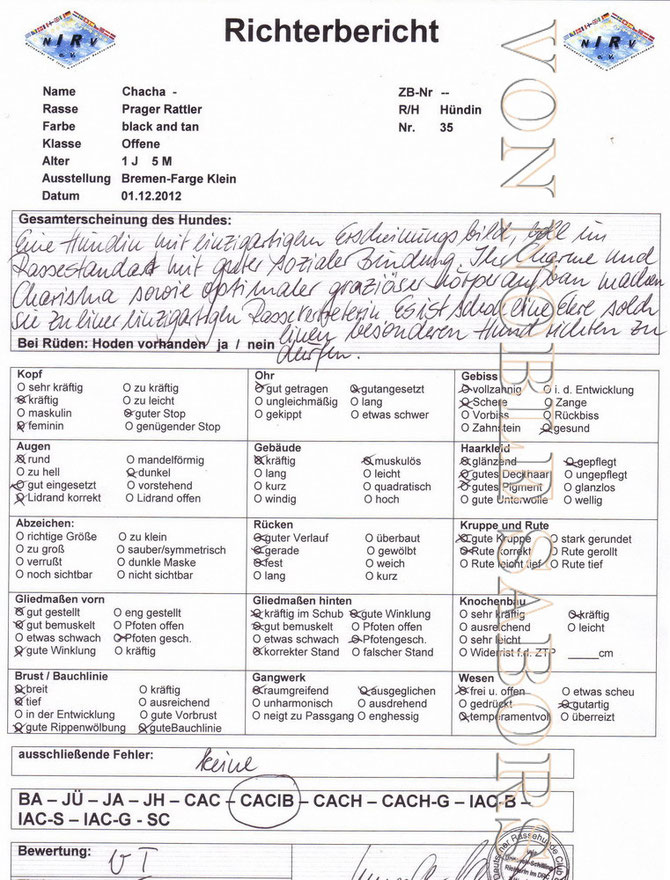 NIRV e.V.
Richterbericht
NIRV e.V.
Name Chacha - ZB-Nr --
Rasse Prager Rattler R/H Hündin
Farbe black and tan Nr. 35
Klasse Offene
Alter 1 J 5 M
Ausstellung Bremen-Farge Klein
Datum 01.12.2012
Gesamterscheinung des Hundes:
Eine Hündin mit einzigartigem Erscheinungsbild, voll im
Rassestandart mit guter sozialer Bindung. Ihr Charme und
Charisma sowie optimaler graziöser Körperaufbau machen
sie zu einer einzigartigen Rassevertreterin. Es ist schon eine Ehre solch
einen besonderen Hund richten zu
Bei Rüden: Hoden vorhanden ja / nein
dürfen.
Kopf
O sehr kräftig O zu kräftig
O kräftig O zu leicht
O maskulin O guter Stop
O feminin O genügender Stop
Ohr
O gut getragen O gutangesetzt
O ungleichmäßig O lang
O gekippt O etwas schwer
Gebiss
O vollzahnig O i. d. Entwicklung
O Schere O Zange
O Vorbiss O Rückbiss
O Zahnstein O gesund
Augen
O rund O mandelförmig
O zu hell O dunkel
O gut eingesetzt O vorstehend
O Lidrand korrekt O Lidrand offen
Gebäude
O kräftig O muskulös
O lang O leicht
O kurz O quadratisch
O windig O hoch
Haarkleid
O glänzend O gepflegt
O gutes Deckhaar O ungepflegt
O gutes Pigment O glanzlos
O gute Unterwolle O wellig
Abzeichen:
O richtige Größe O zu klein
O zu groß O sauber/symmetrisch
O verrußt O dunkle Maske
O noch sichtbar O nicht sichtbar
Rücken
O guter Verlauf O überbaut
O gerade O gewölbt
O fest O weich
O lang O kurz
Kruppe und Rute
O gute Kruppe O stark gerundet
O Rute korrekt O Rute gerollt
O Rute leicht tief O Rute tief
Gliedmaßen vorn
O gut gestellt O eng gestellt
O gut bemuskelt O Pfoten offen
O etwas schwach O Pfoten gesch.
O gute Winklung O kräftig
Gliedmaßen hinten
O kräftig im Schub O gute Winklung
O gut bemuskelt O Pfoten offen
O etwas schwach O Pfotengesch.
O korrekter Stand O falscher Stand
Knochenbau
O sehr kräftig O kräftig
O ausreichend O leicht
O sehr leicht
O Widerrist f.d. ZTP _____cm
Brust / Bauchlinie
O breit O kräftig
O tief O ausreichend
O in der Entwicklung O gute Vorbrust
O gute Rippenwölbung O guteBauchlinie
Gangwerk
O raumgreifend O ausgeglichen
O unharmonisch O ausdrehend
O neigt zu Passgang O enghessig
Wesen
O frei u. offen O etwas scheu
O gedrückt O gutartig
O temperamentvol O überreizt
ausschließende Fehler:
keine
BA – JÜ – JA – JH – CAC – CACIB – CACH – CACH-G – IAC-B –
IAC-S – IAC-G - SC
Bewertung: V 1
VON NOBLER SABORS